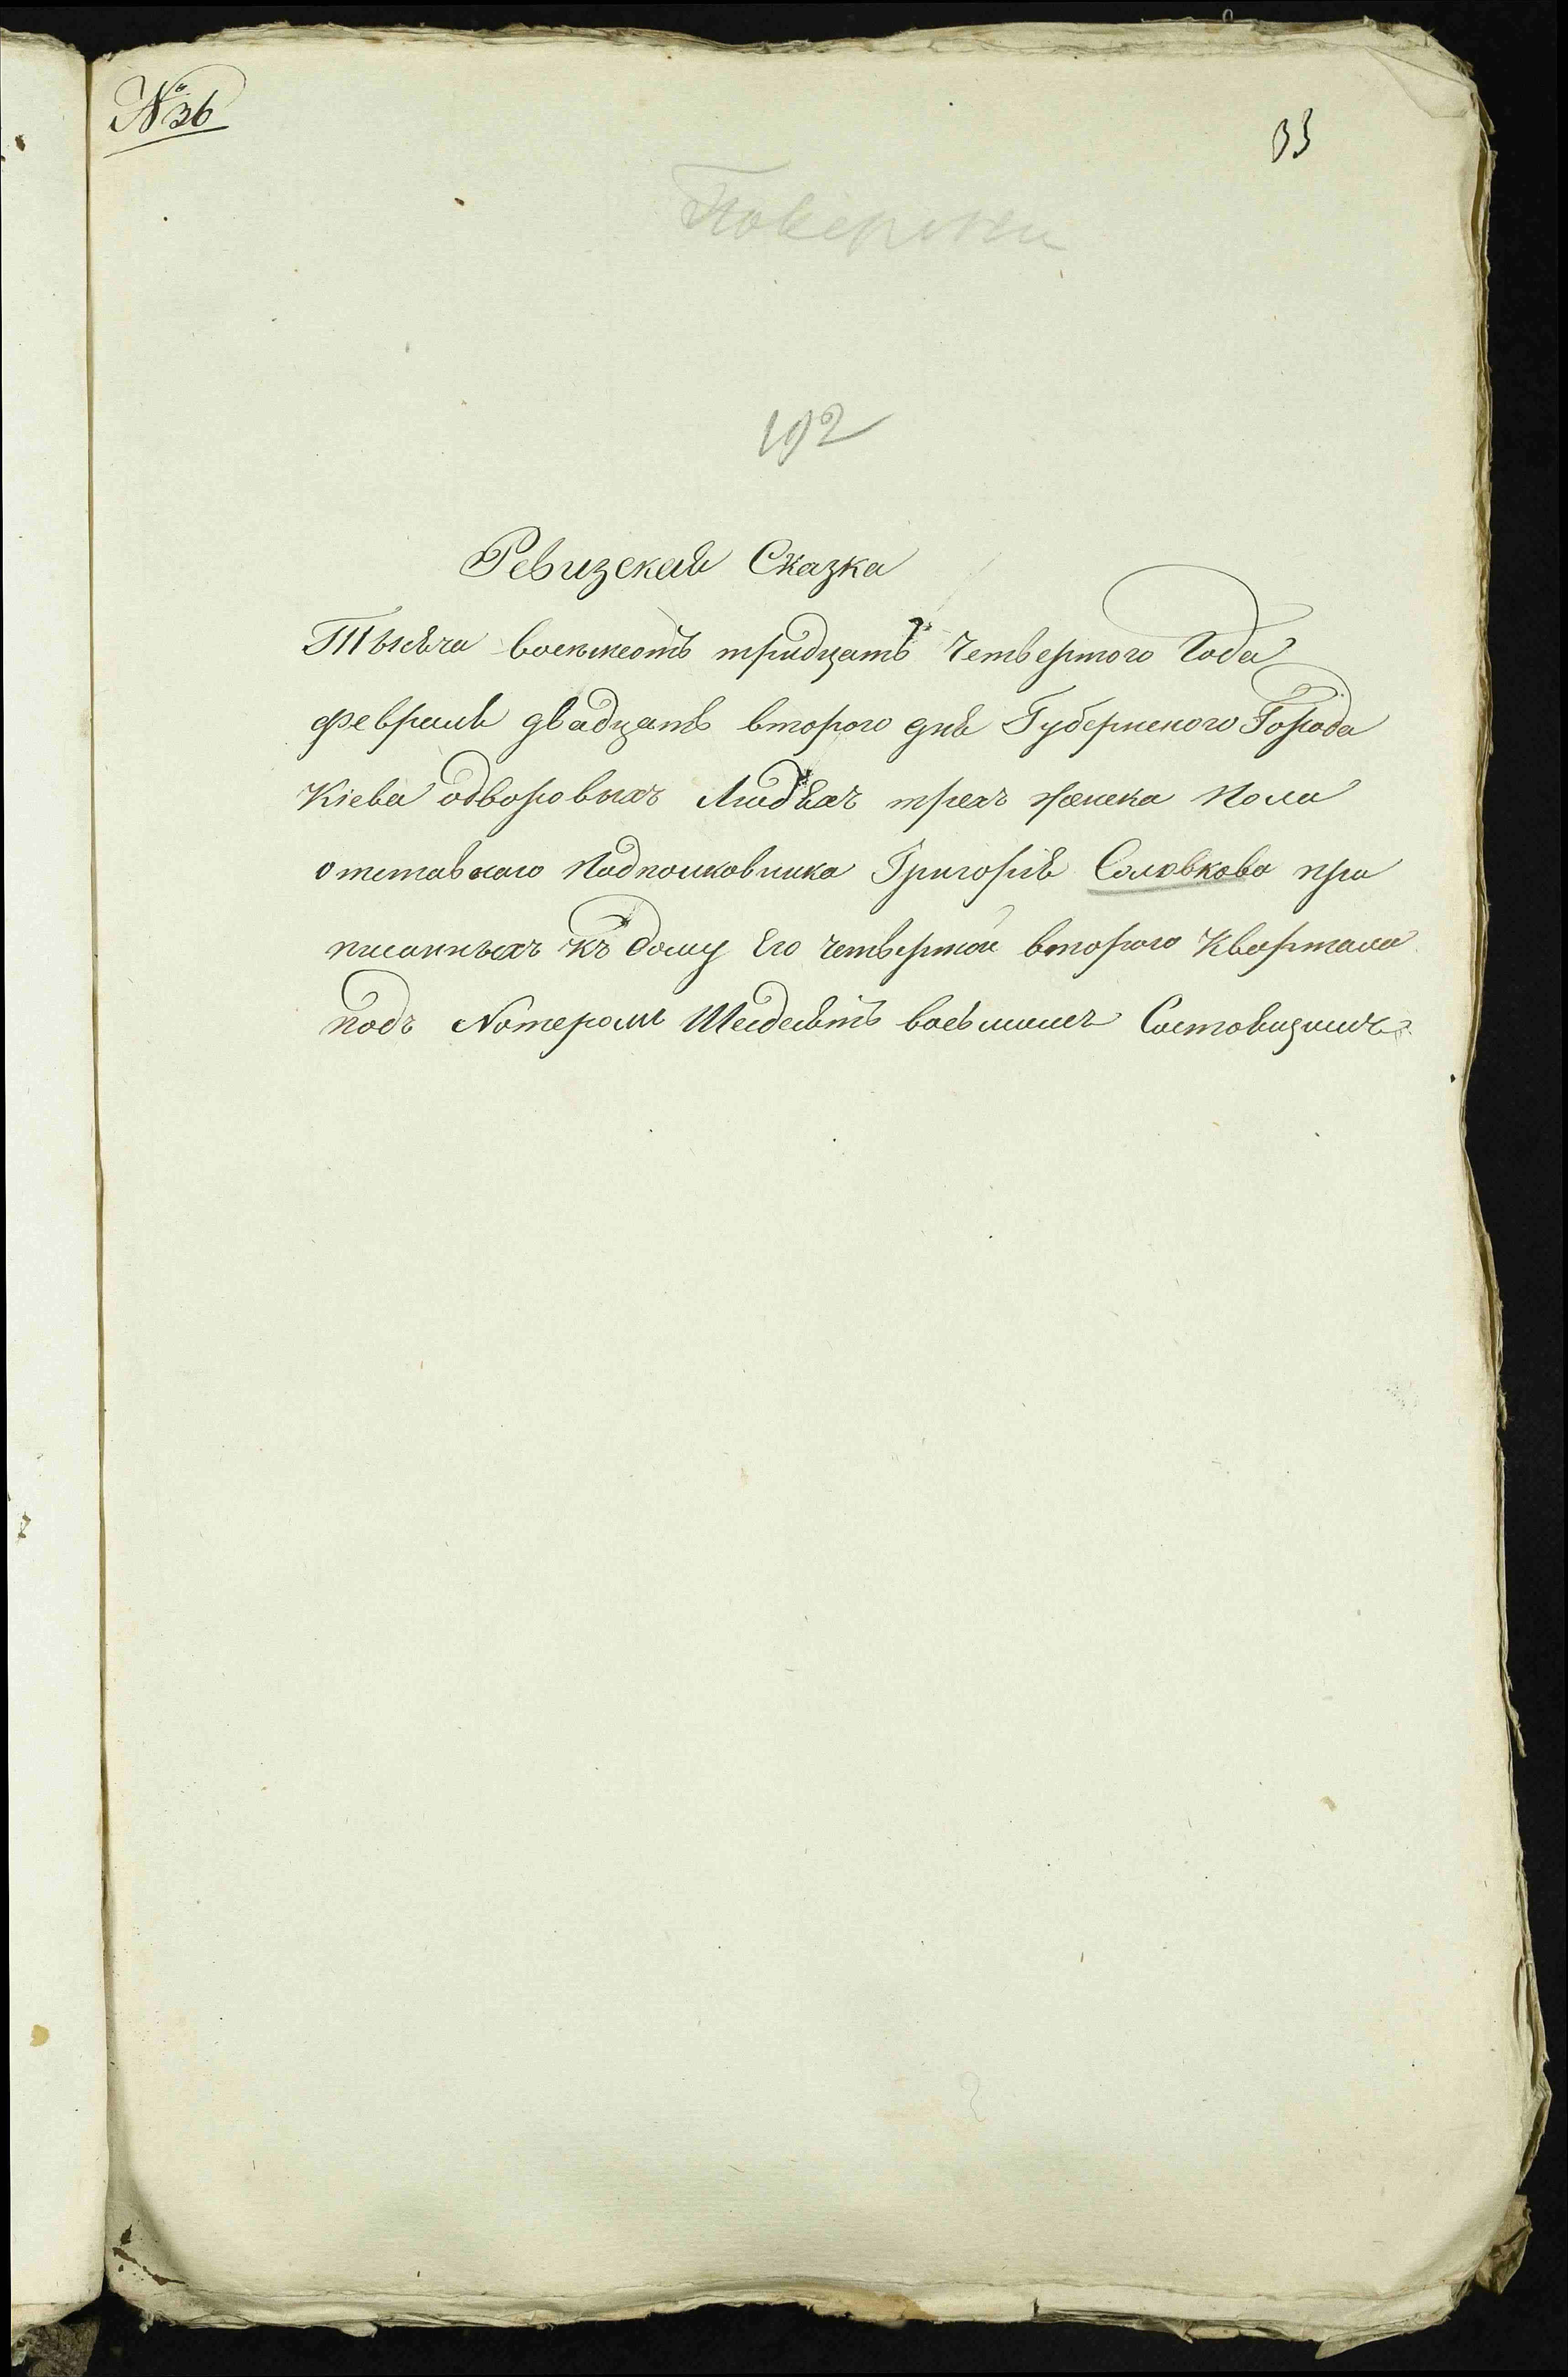 № 36
33
Поверены
192
Ревизская Сказка
Тысяча восемсотъ тридцать четвертого Года
февраля двадцать второго дня Губернского Города
Кіева одворовыхъ людяхъ трехъ женска пола
отставнаго Подполковника Григорія Соловкова при
писанныхъ къ дому Его четвертой второго Квартала
подъ Номеромъ Шесдесятъ восьмымъ Состовщихъ